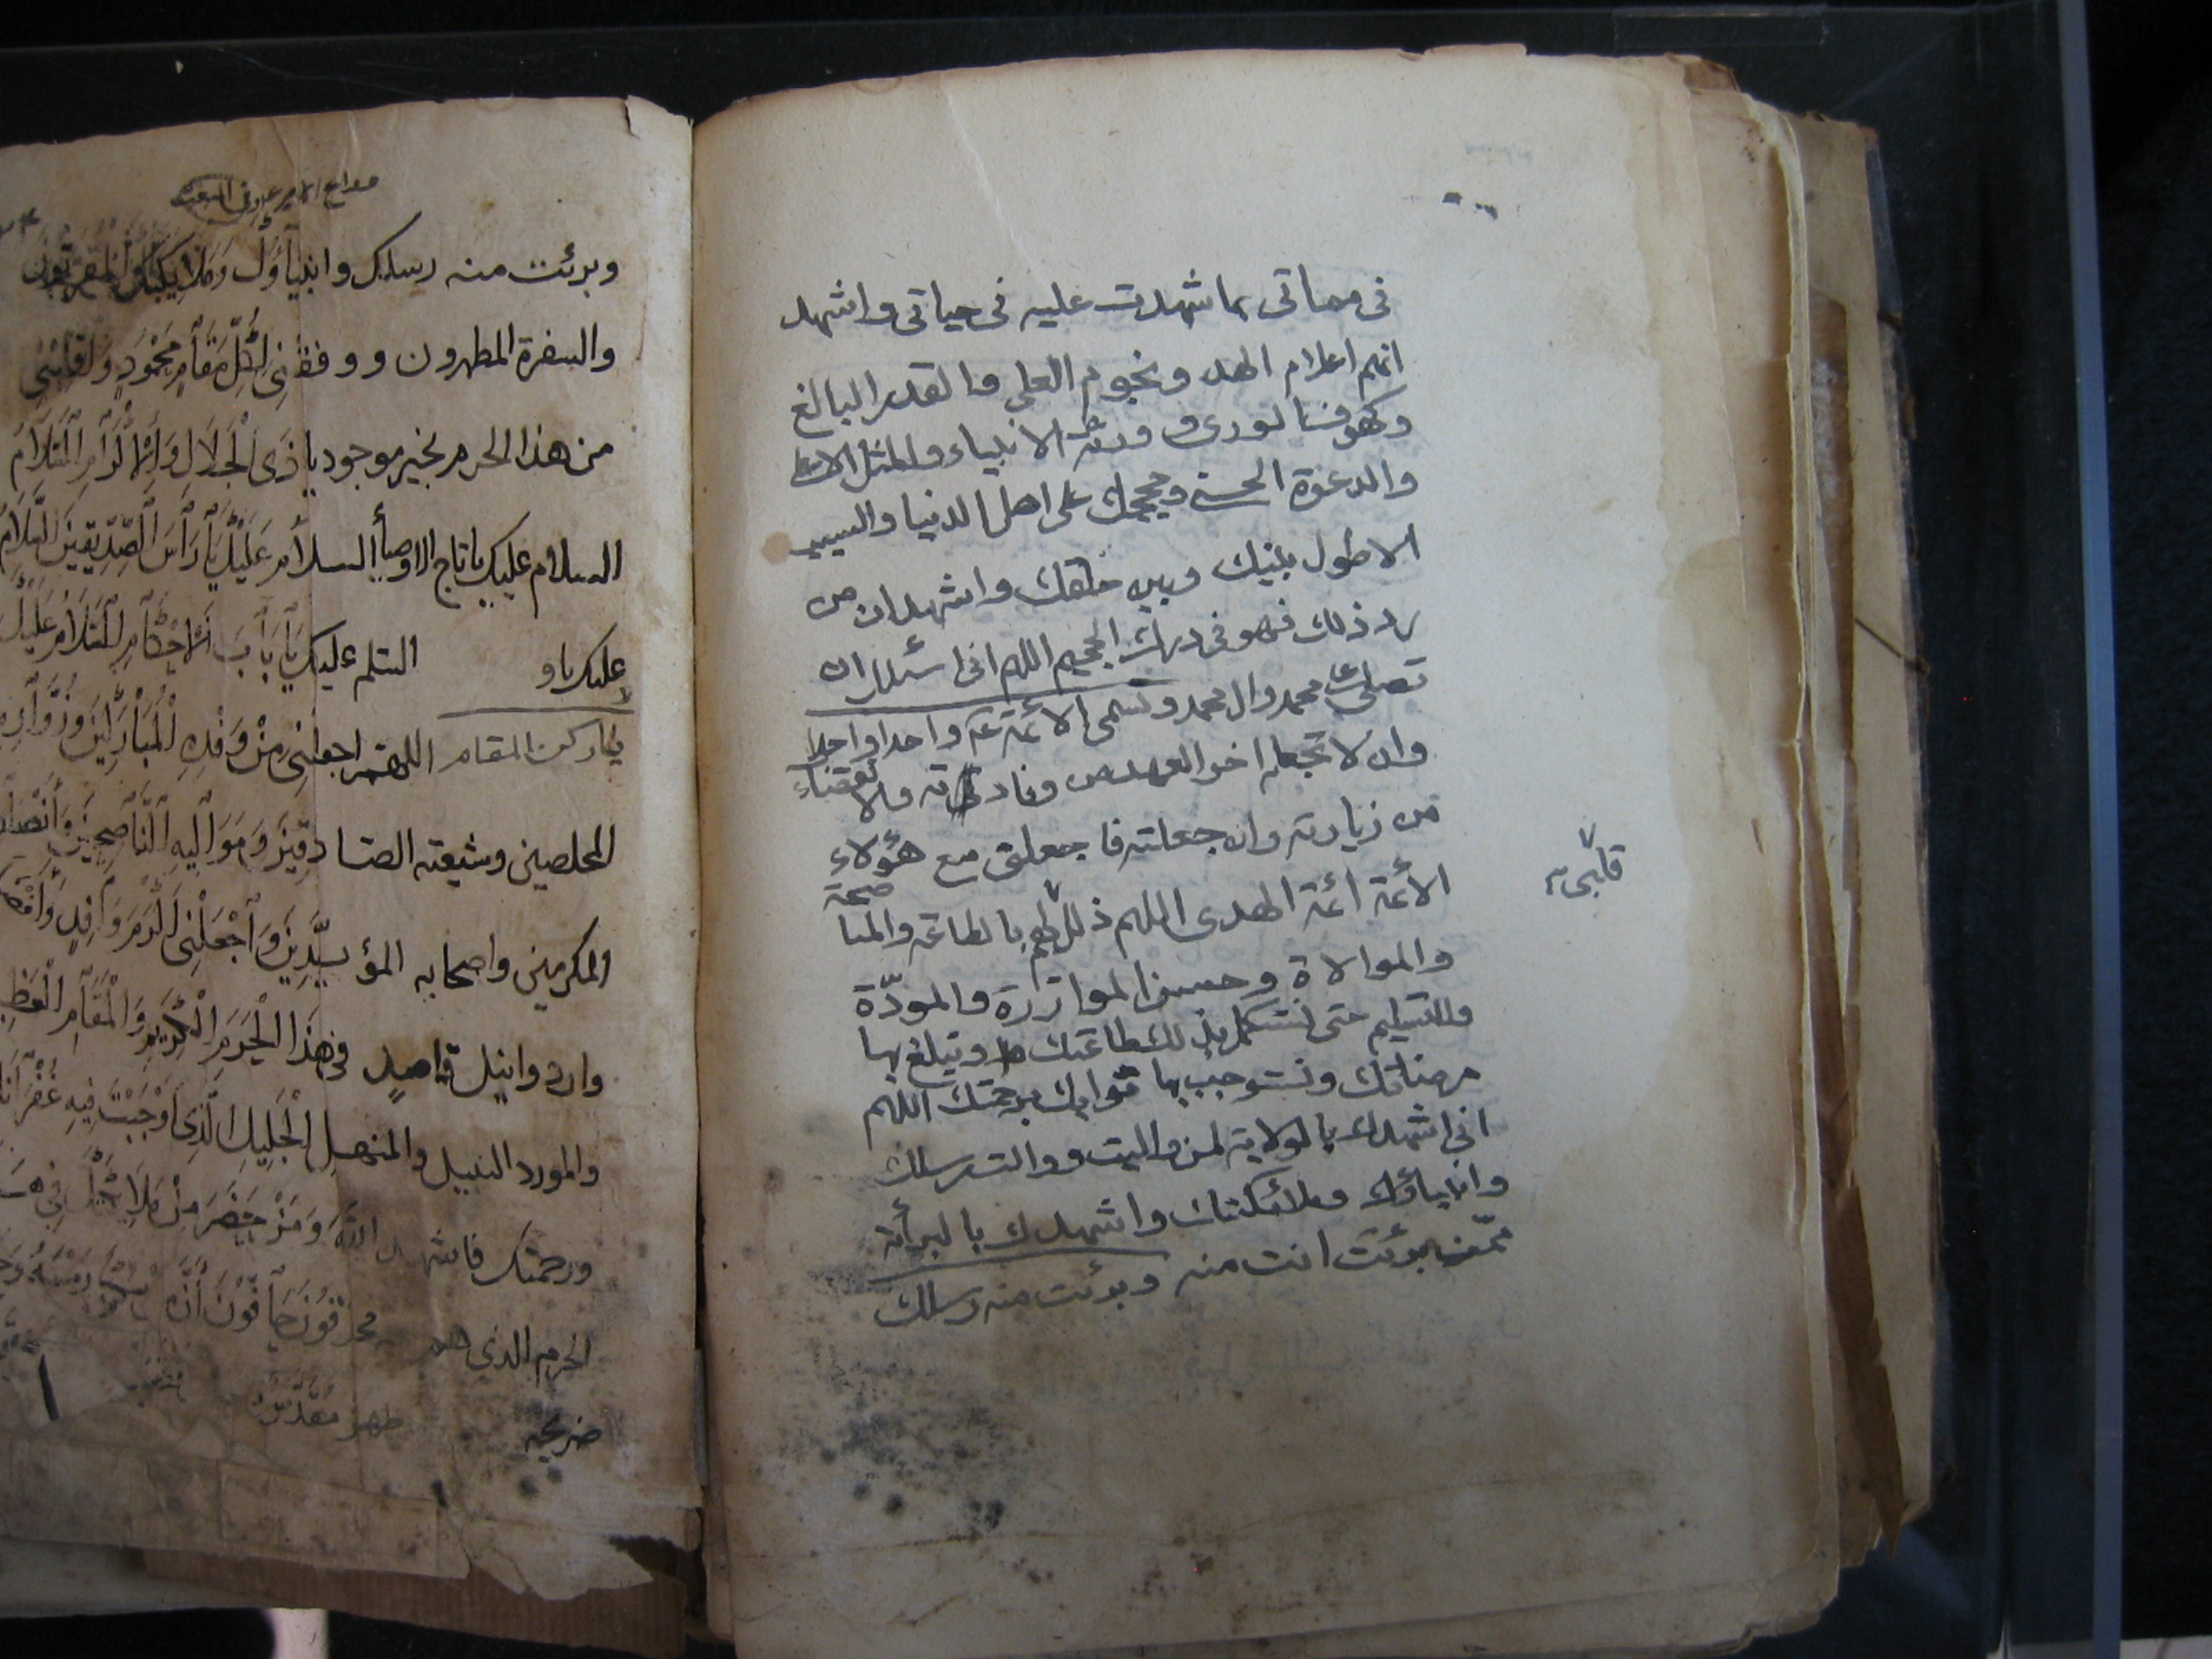 في مماتي بما شهدت عليه في حياتي واشهد
انهم اعلام الهدى ونجوم العلى والقدر البالغ
وكهوف الورى وورثة الانبياء والمثل الاعلى
والدعوة الحسنى وحججك على اهل الدنيا والسبب
الاطول بينك وبين خلقك واشهد ان من
رد ذلك فهو في درك الجحيم اللهم اني اسئلك ان
تصلي على محمد وال محمد وتسمى الائمة واحدا واحدا
وان لا تجعله اخر العهد من وفادته والانقضاء
من زيارته وان جعلته فاجعلني مع هؤلاء
الأئمة ائمة الهدى اللهم ذلل لهم بالطاعة والمناصحة
قلبي
والموالاة وحسن الموازرة والمودّة
والتسليم حتى نستكمل بذلك طاعتك ونبلغ بها
مرضاتك ونستوجب بها ثوابك برحمتك اللهم
اني اشهدك بالولاية لمن واليت ووالت رسلك
وانبياؤك وملائكتك واشهدك بالبرأة
ممّن برئت انت منه وبرئت منه رسلك
وبرئت منه رسلك وانبياؤك وملائكتك المقربون
والسفرة المطهرون ووفقني لِكُلِّ مَقَامٍ مَحْمُودٍ وَاقْلِبْنِي
من هذا الحرم بخير موجود يا ذَى الْجَلَالِ وَالْإِكْرَامِ السَّلَامُ
السلام عليك يا تاج الاوصيأ السلام عَلَيْكَ يَا رَأْسَ الصِّدِّيقِينَ السَّلَامُ
عليك يا و السّلم عليك يَا بَابَ الْأَحْكَامِ السَّلَامُ عَلَيْكَ
يا ركن المقام اللهم اجعلني مِنْ وَفْدِهِ الْمُبَارَكِينَ وَزُوَّارِهِ
المخلصين وشيعته الصادقِينَ وَمَوَالِيهِ النَّاصِحِينَ وَأَنْصَارِهِ
المكرمين واصحابه المؤيَّدِينَ وَاجْعَلْنِي أَكْرَمَ وَافِدٍ وَأَفْضَلَ
وارد وانبل قاصدٍ في هَذَا الْحَرَمِ الْكَرِيمِ وَالْمَقَامِ الْعَظِيمِ
والمورد النبيل والمنهل الْجَلِيلِ الَّذِي أَوْجَبْتَ فِيهِ غُفْرَانَكَ
ورحمتك فاشهد اللَّهَ وَمَنْ حَضَرَ مِنْ مَلَائِكَتِهِ فِي هَذَا
الحرم الذي هم محدقُونَ حَافُّونَ أَنَّ
ضريحه طهر مُقَدَّسٌ